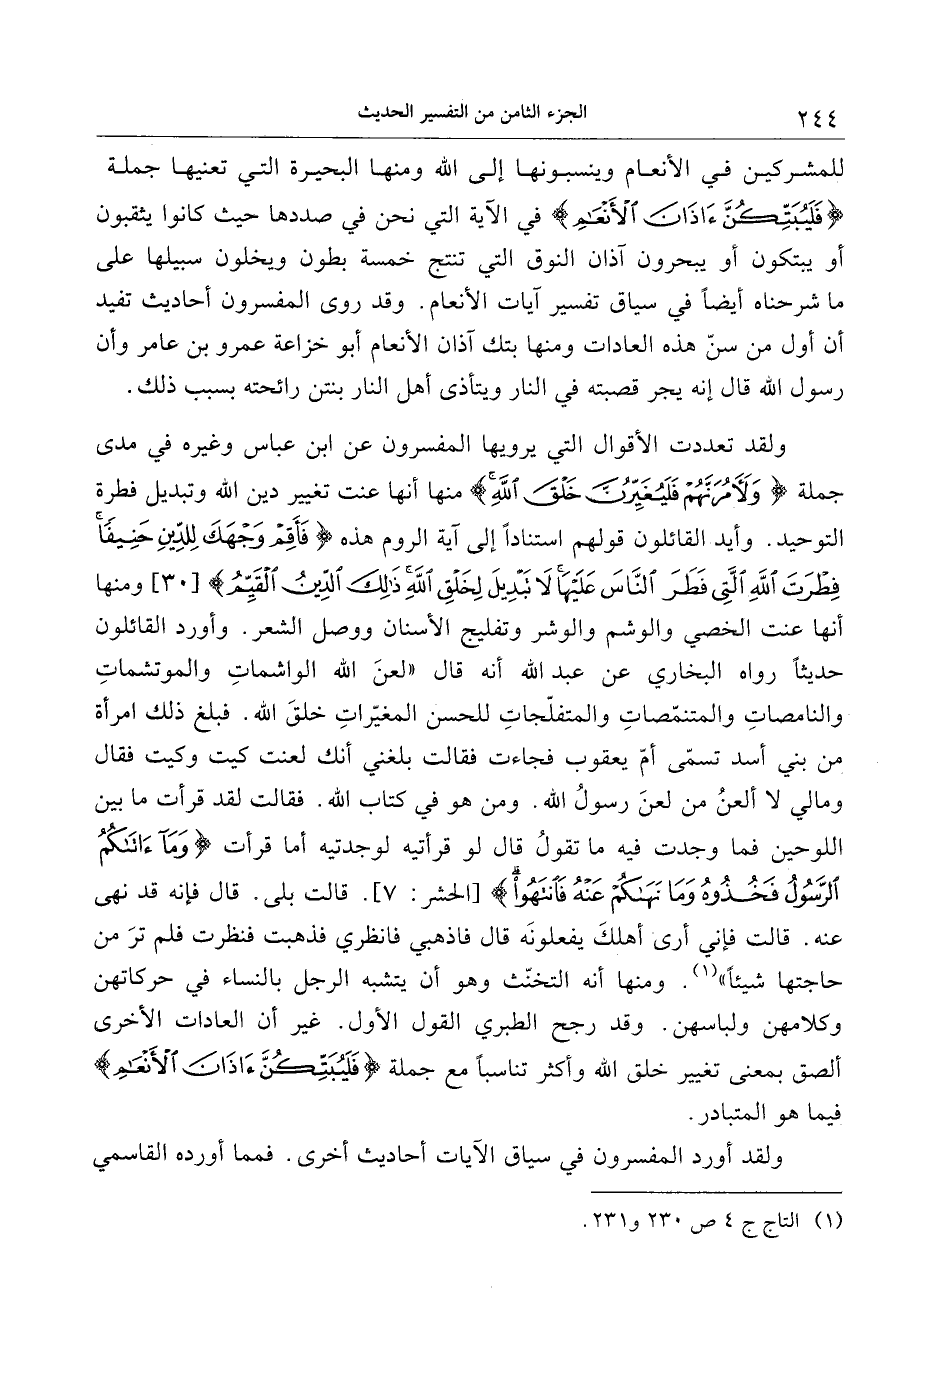 ٢٤٤ الجزء الثامن من التفسير الحديث
للمشركين في الأنعام وينسبونها إلى الله ومنها البحيرة التي تعنيها جملة
﴿ فَلَيُبَتِّكُنَّ ءَاذَانَ ٱلْأَنْعَٰمِ ﴾ في الآية التي نحن في صددها حيث كانوا يثقبون
أو يبتكون أو يبحرون آذان النوق التي تنتج خمسة بطون ويخلون سبيلها على
ما شرحناه أيضاً في سياق تفسير آيات الأنعام. وقد روى المفسرون أحاديث تفيد
أن أول من سنّ هذه العادات ومنها بتك آذان الأنعام أبو خزاعة عمرو بن عامر وأن
رسول الله قال إنه يجر قصبته في النار ويتأذى أهل النار بنتن رائحته بسبب ذلك.
ولقد تعددت الأقوال التي يرويها المفسرون عن ابن عباس وغيره في مدى
جملة ﴿ وَلَآمُرَنَّهُمْ فَلَيُغَيِّرُنَّ خَلْقَ ٱللَّهِۚ ﴾ منها أنها عنت تغيير دين الله وتبديل فطرة
التوحيد. وأيد القائلون قولهم استناداً إلى آية الروم هذه ﴿ فَأَقِمْ وَجْهَكَ لِلدِّينِ حَنِيفًاۚ
فِطْرَتَ ٱللَّهِ ٱلَّتِى فَطَرَ ٱلنَّاسَ عَلَيْهَاۚ لَا نَبْدِيلَ لِخَلْقِ ٱللَّهِۚ ذَٰلِكَ ٱلدِّينُ ٱلْقَيِّمُ ﴾ [٣٠] ومنها
أنها عنت الخصي والوشم والوشر وتفليج الأسنان ووصل الشعر. وأورد القائلون
حديثاً رواه البخاري عن عبد الله أنه قال «لعنَ الله الواشماتِ والموتشماتِ
والنامصاتِ والمتنمّصاتِ والمتفلّجاتِ للحسن المغيّراتِ خلقَ الله. فبلغ ذلك امرأة
من بني أسد تسمّى أمّ يعقوب فجاءت فقالت بلغني أنك لعنت كيت وكيت فقال
ومالي لا ألعنُ من لعنَ رسولُ الله. ومن هو في كتاب الله. فقالت لقد قرأت ما بين
اللوحين فما وجدت فيه ما تقولُ قال لو قرأتيه لوجدتيه أما قرأت ﴿ وَمَآ ءَاتَىٰكُمُ
ٱلرَّسُولُ فَخُذُوهُ وَمَا نَهَىٰكُمْ عَنْهُ فَٱنتَهُوا۟ۚ ﴾ [الحشر: ٧]. قالت بلى. قال فإنه قد نهى
عنه. قالت فإني أرى أهلكَ يفعلونَه قال فاذهبي فانظري فذهبت فنظرت فلم ترَ من
حاجتها شيئاً»(١). ومنها أنه التخنّث وهو أن يتشبه الرجل بالنساء في حركاتهن
وكلامهن ولباسهن. وقد رجح الطبري القول الأول. غير أن العادات الأخرى
ألصق بمعنى تغيير خلق الله وأكثر تناسباً مع جملة ﴿ فَلَيُبَتِّكُنَّ ءَاذَانَ ٱلْأَنْعَٰمِ ﴾
فيما هو المتبادر.
ولقد أورد المفسرون في سياق الآيات أحاديث أخرى. فمما أورده القاسمي
(١) التاج ج ٤ ص ٢٣٠ و٢٣١.